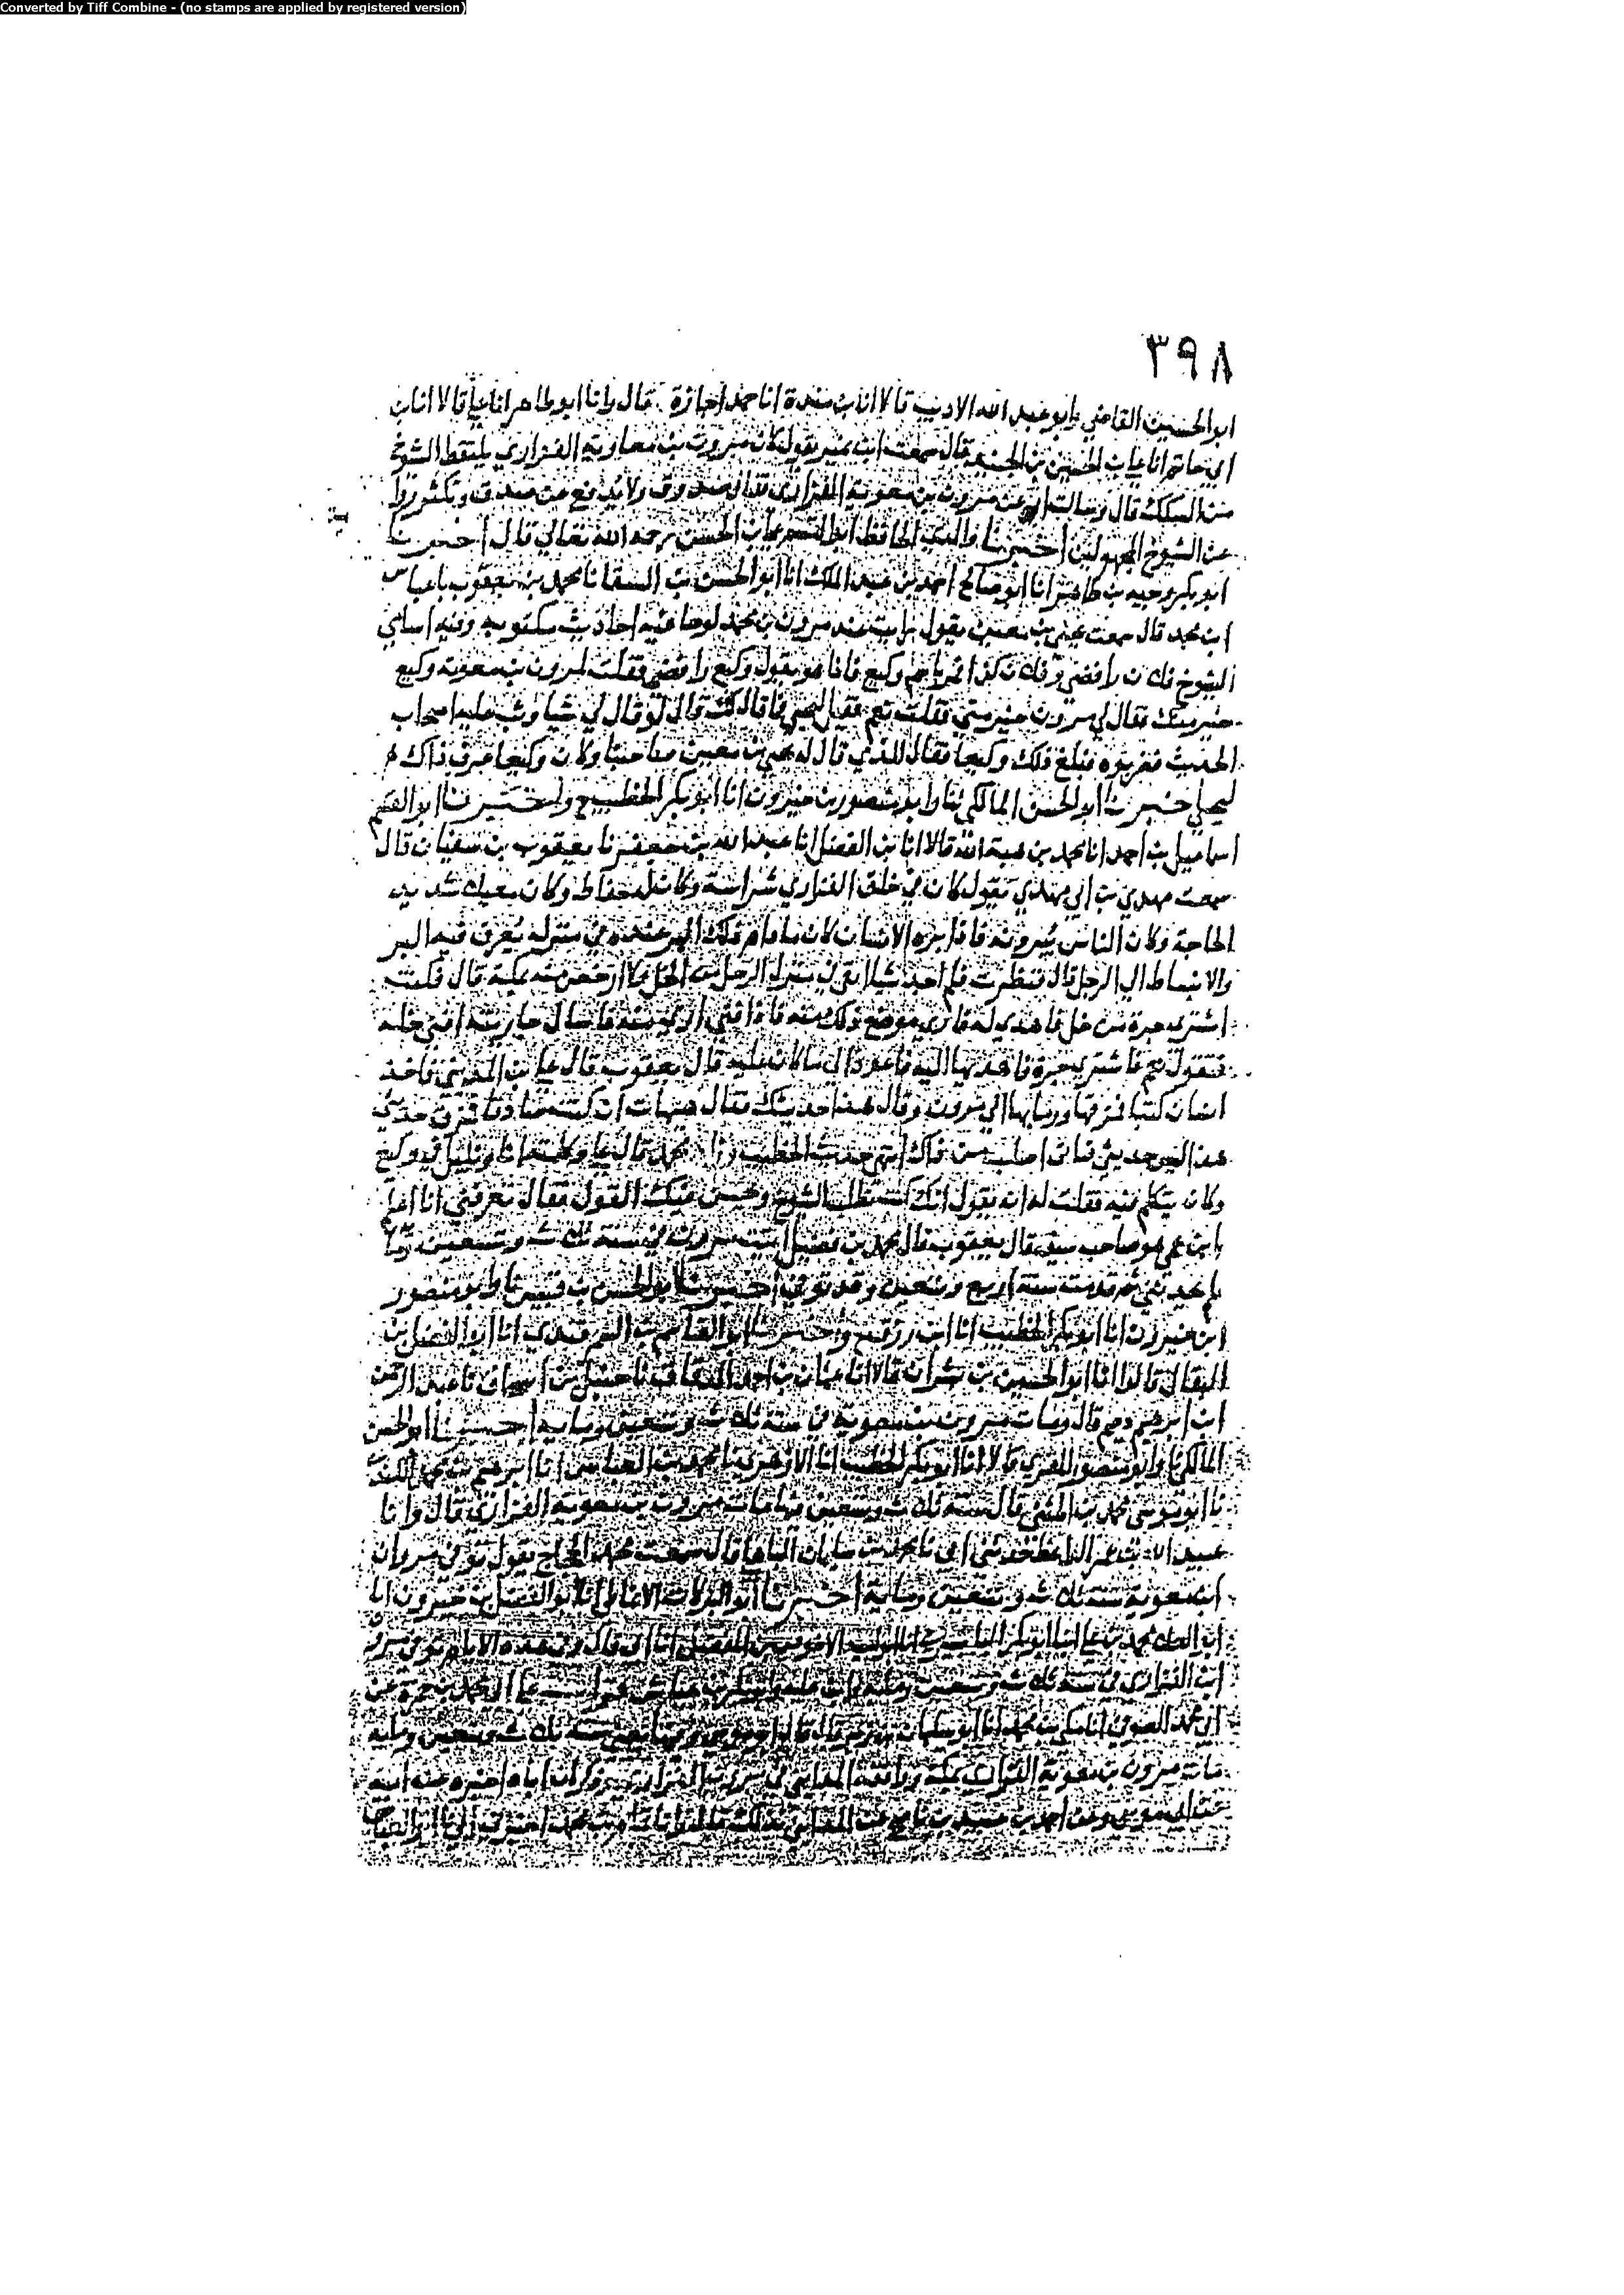 Converted by Tiff Combine - (no stamps are applied by registered version)
٣٩٨
ابو الحسين القاضي وابو عبد الله الاديب قالا انا بن مندة انا حمد اجازة قال وانا ابو طاهر انا علي قالا انا بن
ابي حاتم انا علي بن الحسين بن الجنيد قال سمعت ابن نمير يقول كان مروان بن معاوية الفزاري يلتقط الشيوخ
من السكك قال وسالت ابي عن مروان بن معوية الفزاري فقال صدوق ولا يدفع عن صدق وتكثر روا
عن الشيوخ المجهولين اخبرنا والدي الحافظ ابو القسم علي بن الحسن رحمه الله تعالى قال اخبرنا
ابو بكر وجيه بن طاهر انا ابو صالح احمد بن عبد الملك انا ابو الحسن بن السقا نا محمد بن يعقوب نا عباس
ابن محمد قال سمعت يحيى بن معين يقول رايت عند مرون بن محمد لوحا فيه احاديث مكتوبه وفيه اسامي
الشيوخ فلان رافضي وفلان كذا ثم وكيع فاذا هو يقول وكيع رافضي فقلت لمرون بن معوية وكيع
خير منك فقال لي مرون خير مني فقلت نعم فقيل ليحيى فما قال لك قال لو قال لي شيا وثب عليه اصحاب
الحديث فضربوه فبلغ ذلك وكيعا فقال للذي قال له يحيى بن معين صاحبنا وكان وكيعا عرف ذاك
ليحيى اخبرنا ابو الحسن المالكي نا وابو منصور بن خيرون انا ابو بكر الخطيب ح واخبرنا ابو القسم
اسماعيل بن احمد انا محمد بن هبة الله قالا انا بن الفضل انا عبد الله بن جعفر نا يعقوب بن سفيان قال
سمعت مهدي بن ابي مهدي يقول كان في خلق الفزاري شراسة وكان له حفاظ وكان معيلا شديد
الحاجة وكان الناس يبرونه فاذا بره الانسان كان ما دام ذلك البر عنده في منزله يعرف فيه البر
والانبساط الى الرجل قال فنظرت فلم اجد شيا ابقى في منزل الرجل من الخل ولا ارخص منه بمكة قال فكنت
اشتري جرة من خل فاهدي له فارى موضع ذلك منه فاذا فني ارى منه فاسال جاريته افني خله
فتقول نعم فاشتري جرة فاهديها اليه فاعود الى ما كان عليه قال يعقوب قال علي بن المديني فاخذ
انسان كتبا فمزقها ورمى بها الى مرون وقال هذا حديثك فقال هيهات ان كنت صادقا فمزق حديثي
وكان يتكلم فيه فقلت له انه يقول انك كنت تطلب الشيوخ ويحسن فيك القول فقال تعرفني انا اعلم
يا بن عم هو صاحب سنة قال يعقوب قال محمد بن فضيل اتيت مرون في سنة ثلاث وتسعين
لم يحدثني ثم قدمت سنة اربع وتسعين وقد توفي اخبرنا ابو الحسن بن قبيس نا وابو منصور
ابن خيرون انا ابو بكر الخطيب انا ابن رزق ح واخبرنا ابو القاسم بن السمرقندي انا ابو الفضل بن
البقال قالوا انا ابو الحسين بن بشران قالا انا عثمان بن احمد الدقاق نا حنبل بن اسحاق نا عبد الرحمن
ابن ابرهيم دحيم قال ومات مرون بن معوية في سنة ثلاث وتسعين ومايه اخبرنا ابو الحسن
المالكي نا وابو منصور المقري قالا انا ابو بكر الخطيب انا الازهري نا محمد بن العباس انا ابرهيم بن محمد الكندي
نا ابو موسى محمد بن المثنى قال سنة ثلاث وتسعين فيها مات مروان بن معوية الفزاري قال وانا
عبيد الله بن عمر الواعظ حدثني ابي نا محمد بن سليمان الباهلي قال سمعت محمد الحجاج يقول توفي مروان
ابن معوية سنة ثلاث وتسعين وماية اخبرنا ابو البركات الانماطي انا ابو الفضل بن خيرون انا
ابو العلاء محمد بن علي انا ابو بكر البابسيري انا الاحوص بن المفضل انا ابي قال وفي هذه الايام توفي مرون
ابن الفزاري في سنة ثلاث وتسعين
ابي محمد الصوفي انا مكي بن محمد انا ابو سليمان بن زبر قال سنة ثلاث وتسعين ومايه
مات مرون بن معوية الفزاري بمكة